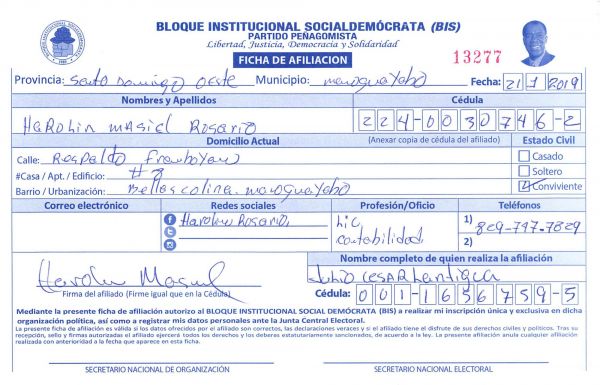 BLOQUE INSTITUCIONAL SOCIALDEMÓCRATA (BIS)
PARTIDO PEÑAGOMISTA
Libertad, Justicia, Democracia y Solidaridad
FICHA DE AFILIACION
13277
Provincia: Santo Domingo Oeste Municipio: manoguayabo Fecha: 21 1 2019
Nombres y Apellidos Cédula
Harolin Masiel Rosario 224-0030746-2
Domicilio Actual (Anexar copia de cédula del afiliado) Estado Civil
Calle: Respaldo Framboyan Casado
#Casa / Apt. / Edificio: #8 Soltero
Barrio / Urbanización: Bellas colina. manoguayabo Conviviente
Correo electrónico Redes sociales Profesión/Oficio Teléfonos
Harolin Rosario, Lic 1) 829-797-7829
contabilidad 2)
Nombre completo de quien realiza la afiliación
Harolin Masiel Julio Cesar Lantigua
Firma del afiliado (Firme igual que en la Cédula) Cédula: 001-1656759-5
Mediante la presente ficha de afiliación autorizo al BLOQUE INSTITUCIONAL SOCIAL DEMÓCRATA (BIS) a realizar mi inscripción única y exclusiva en dicha
organización política, así como a registrar mis datos personales ante la Junta Central Electoral.
La presente ficha de afiliación es válida si los datos ofrecidos por el afiliado son correctos, las declaraciones veraces y si el afiliado tiene el disfrute de sus derechos civiles y políticos. Tras su
recepción, sello y firmas autorizadas el afiliado ejercerá todos los derechos y los deberes estatutariamente sancionados, de acuerdo a la ley. La presente afiliación anula cualquier afiliación
realizada con anterioridad a la fecha que aparece en esta ficha.
SECRETARIO NACIONAL DE ORGANIZACIÓN SECRETARIO NACIONAL ELECTORAL